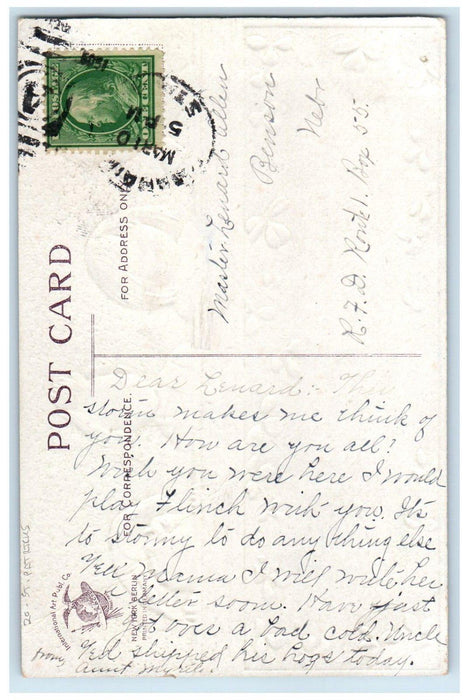 POST CARD
FOR ADDRESS ONLY
FOR CORRESPONDENCE.
MAR 10
5 PM
1909
Master Lenard Allen
Benson
Nebr
R.F.D. Route 1. Box 55.
Dear Lenard:- This
storm makes me think of
you. How are you all?
Wish you were here I would
play Flinch with you. It's
to stormy to do any thing else
Tell Mama I will write her
a letter soon. Have just
got over a bad cold. Uncle
Ed shipped his hogs today.
from Aunt Myrtle.
International Art Publ. Co.
NEW YORK BERLIN
PRINTED IN GERMANY